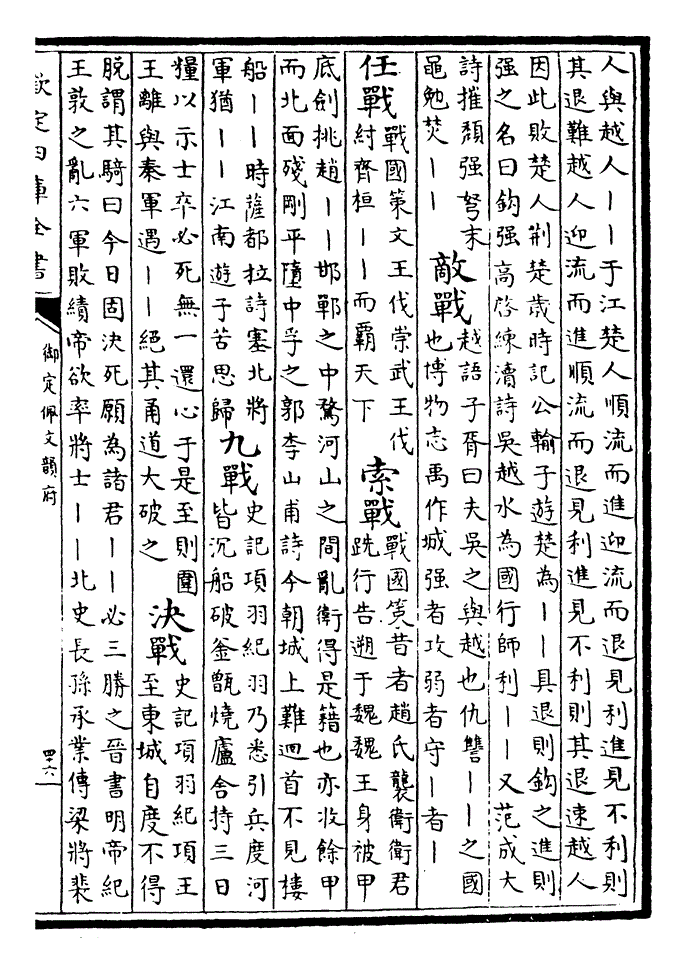 人與越人丨丨于江楚人順流而進迎流而退見利進見不利則
其退難越人迎流而進順流而退見利進見不利則其退速越人
因此敗楚人荆楚歳時記公輸子遊楚為丨丨具退則鈎之進則
强之名曰鈎强高啓練瀆詩吳越水為國行師利丨丨又范成大
詩摧頽强弩末
黽勉焚丨丨
敵戰
越語子胥曰夫吳之與越也仇讐丨丨之國
也博物志禹作城强者攻弱者守丨者丨
任戰
戰國策文王伐崇武王伐
紂齊桓丨丨而霸天下
索戰
戰國策昔者趙氏襲衛衛君
跣行告遡于魏魏王身被甲
底劍挑趙丨丨邯鄲之中騖河山之間亂衛得是籍也亦收餘甲
而北面殘剛平墮中孚之郭李山甫詩今朝城上難迴首不見樓
船丨丨時薩都拉詩塞北將
軍猶丨丨江南遊子苦思歸
九戰
史記項羽紀羽乃悉引兵度河
皆沉船破釜甑燒廬舍持三日
糧以示士卒必死無一還心于是至則圍
王離與秦軍遇丨丨絕其甬道大破之
決戰
史記項羽紀項王
至東城自度不得
脫謂其騎曰今日固決死願為諸君丨丨必三勝之晉書明帝紀
王敦之亂六軍敗績帝欲率將士丨丨北史長孫承業傳梁將裴
欽定四庫全書
御定佩文韻府
四十六